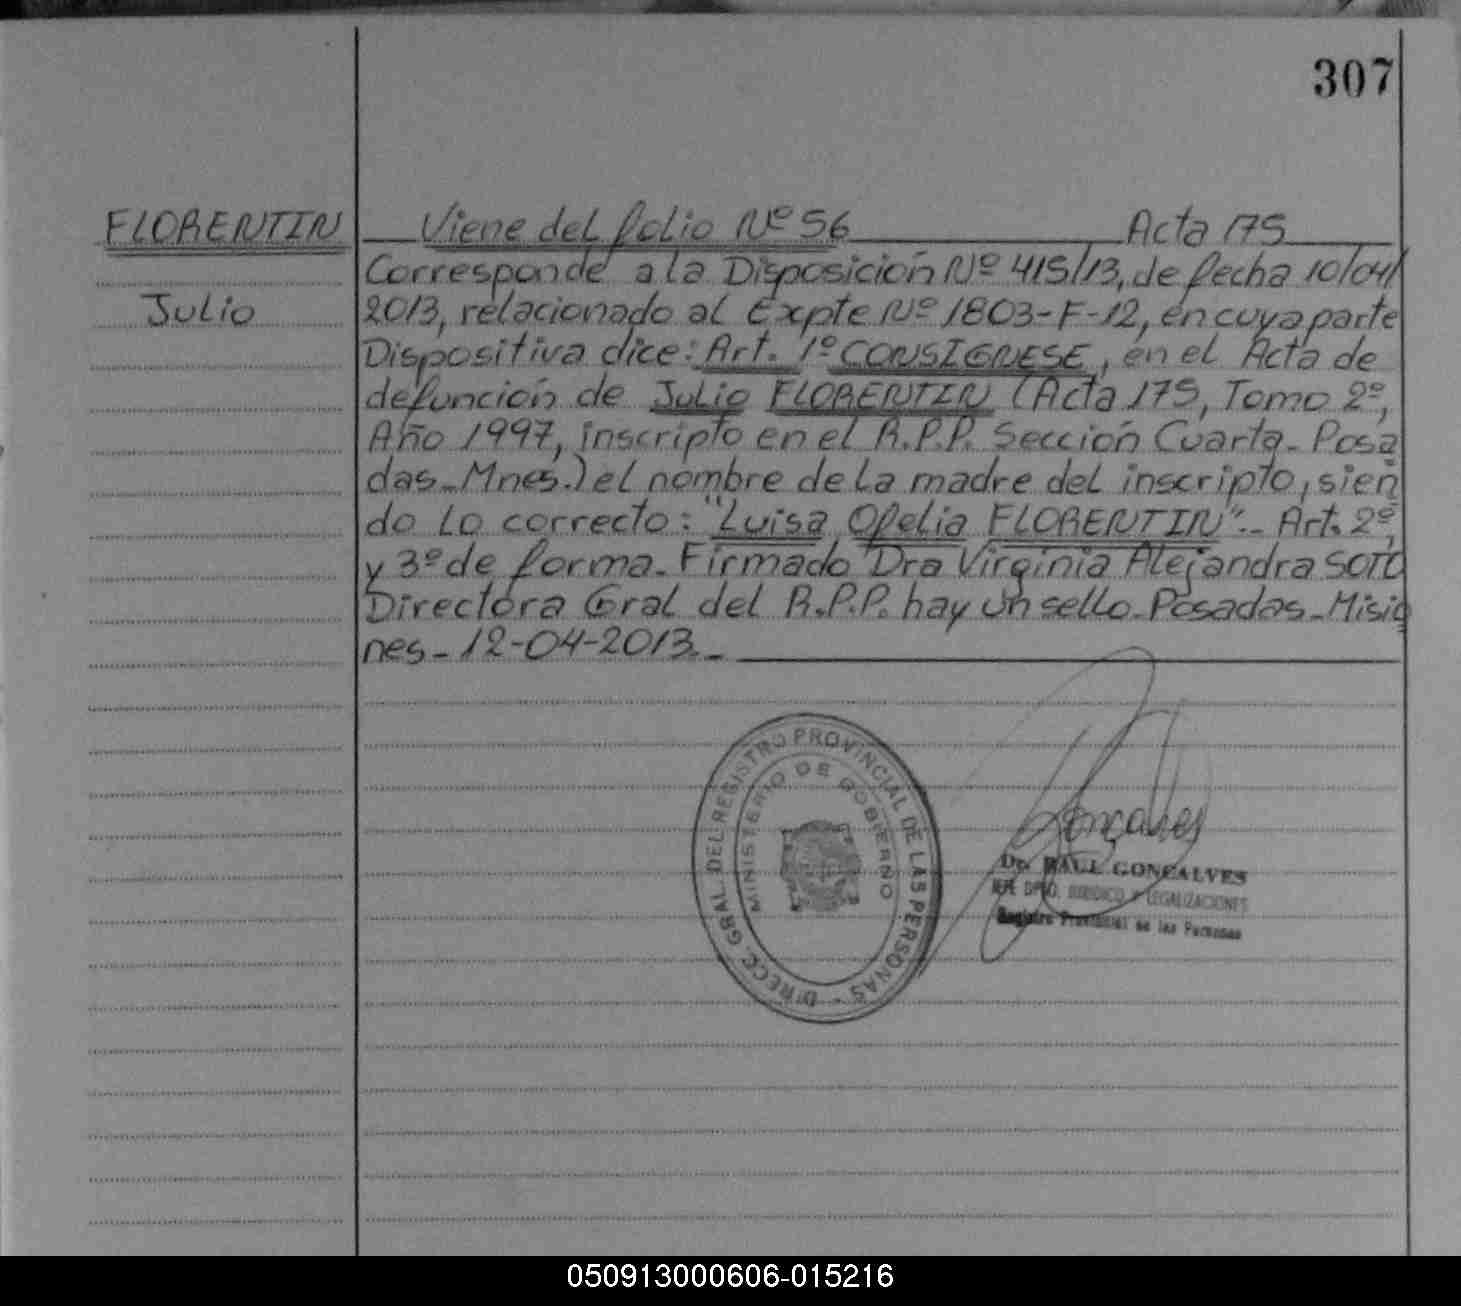 307
FLORENTIN
Julio
Viene del folio Nº 56 Acta 175
Corresponde a la Disposición Nº 415/13, de fecha 10/04/
2013, relacionado al Expte Nº 1803-F-12, en cuya parte
Dispositiva dice: Art. 1º CONSIGNESE, en el Acta de
defunción de Julio FLORENTIN (Acta 175, Tomo 2º,
Año 1997, inscripto en el R.P.P. Sección Cuarta - Posa
das - Mnes.) el nombre de la madre del inscripto, sien
do lo correcto: "Luisa Ofelia FLORENTIN".- Art. 2º,
y 3º de forma. Firmado Dra Virginia Alejandra SOTO
Directora Gral del R.P.P. hay un sello. Posadas - Misio
nes - 12-04-2013.-
DIRECC. GRAL. DEL REGISTRO PROVINCIAL DE LAS PERSONAS -
MINISTERIO DE GOBIERNO
Gonçalves
Dr. RAUL GONCALVES
JEFE DPTO. JURIDICO Y LEGALIZACIONES
Registro Provincial de las Personas
050913000606-015216